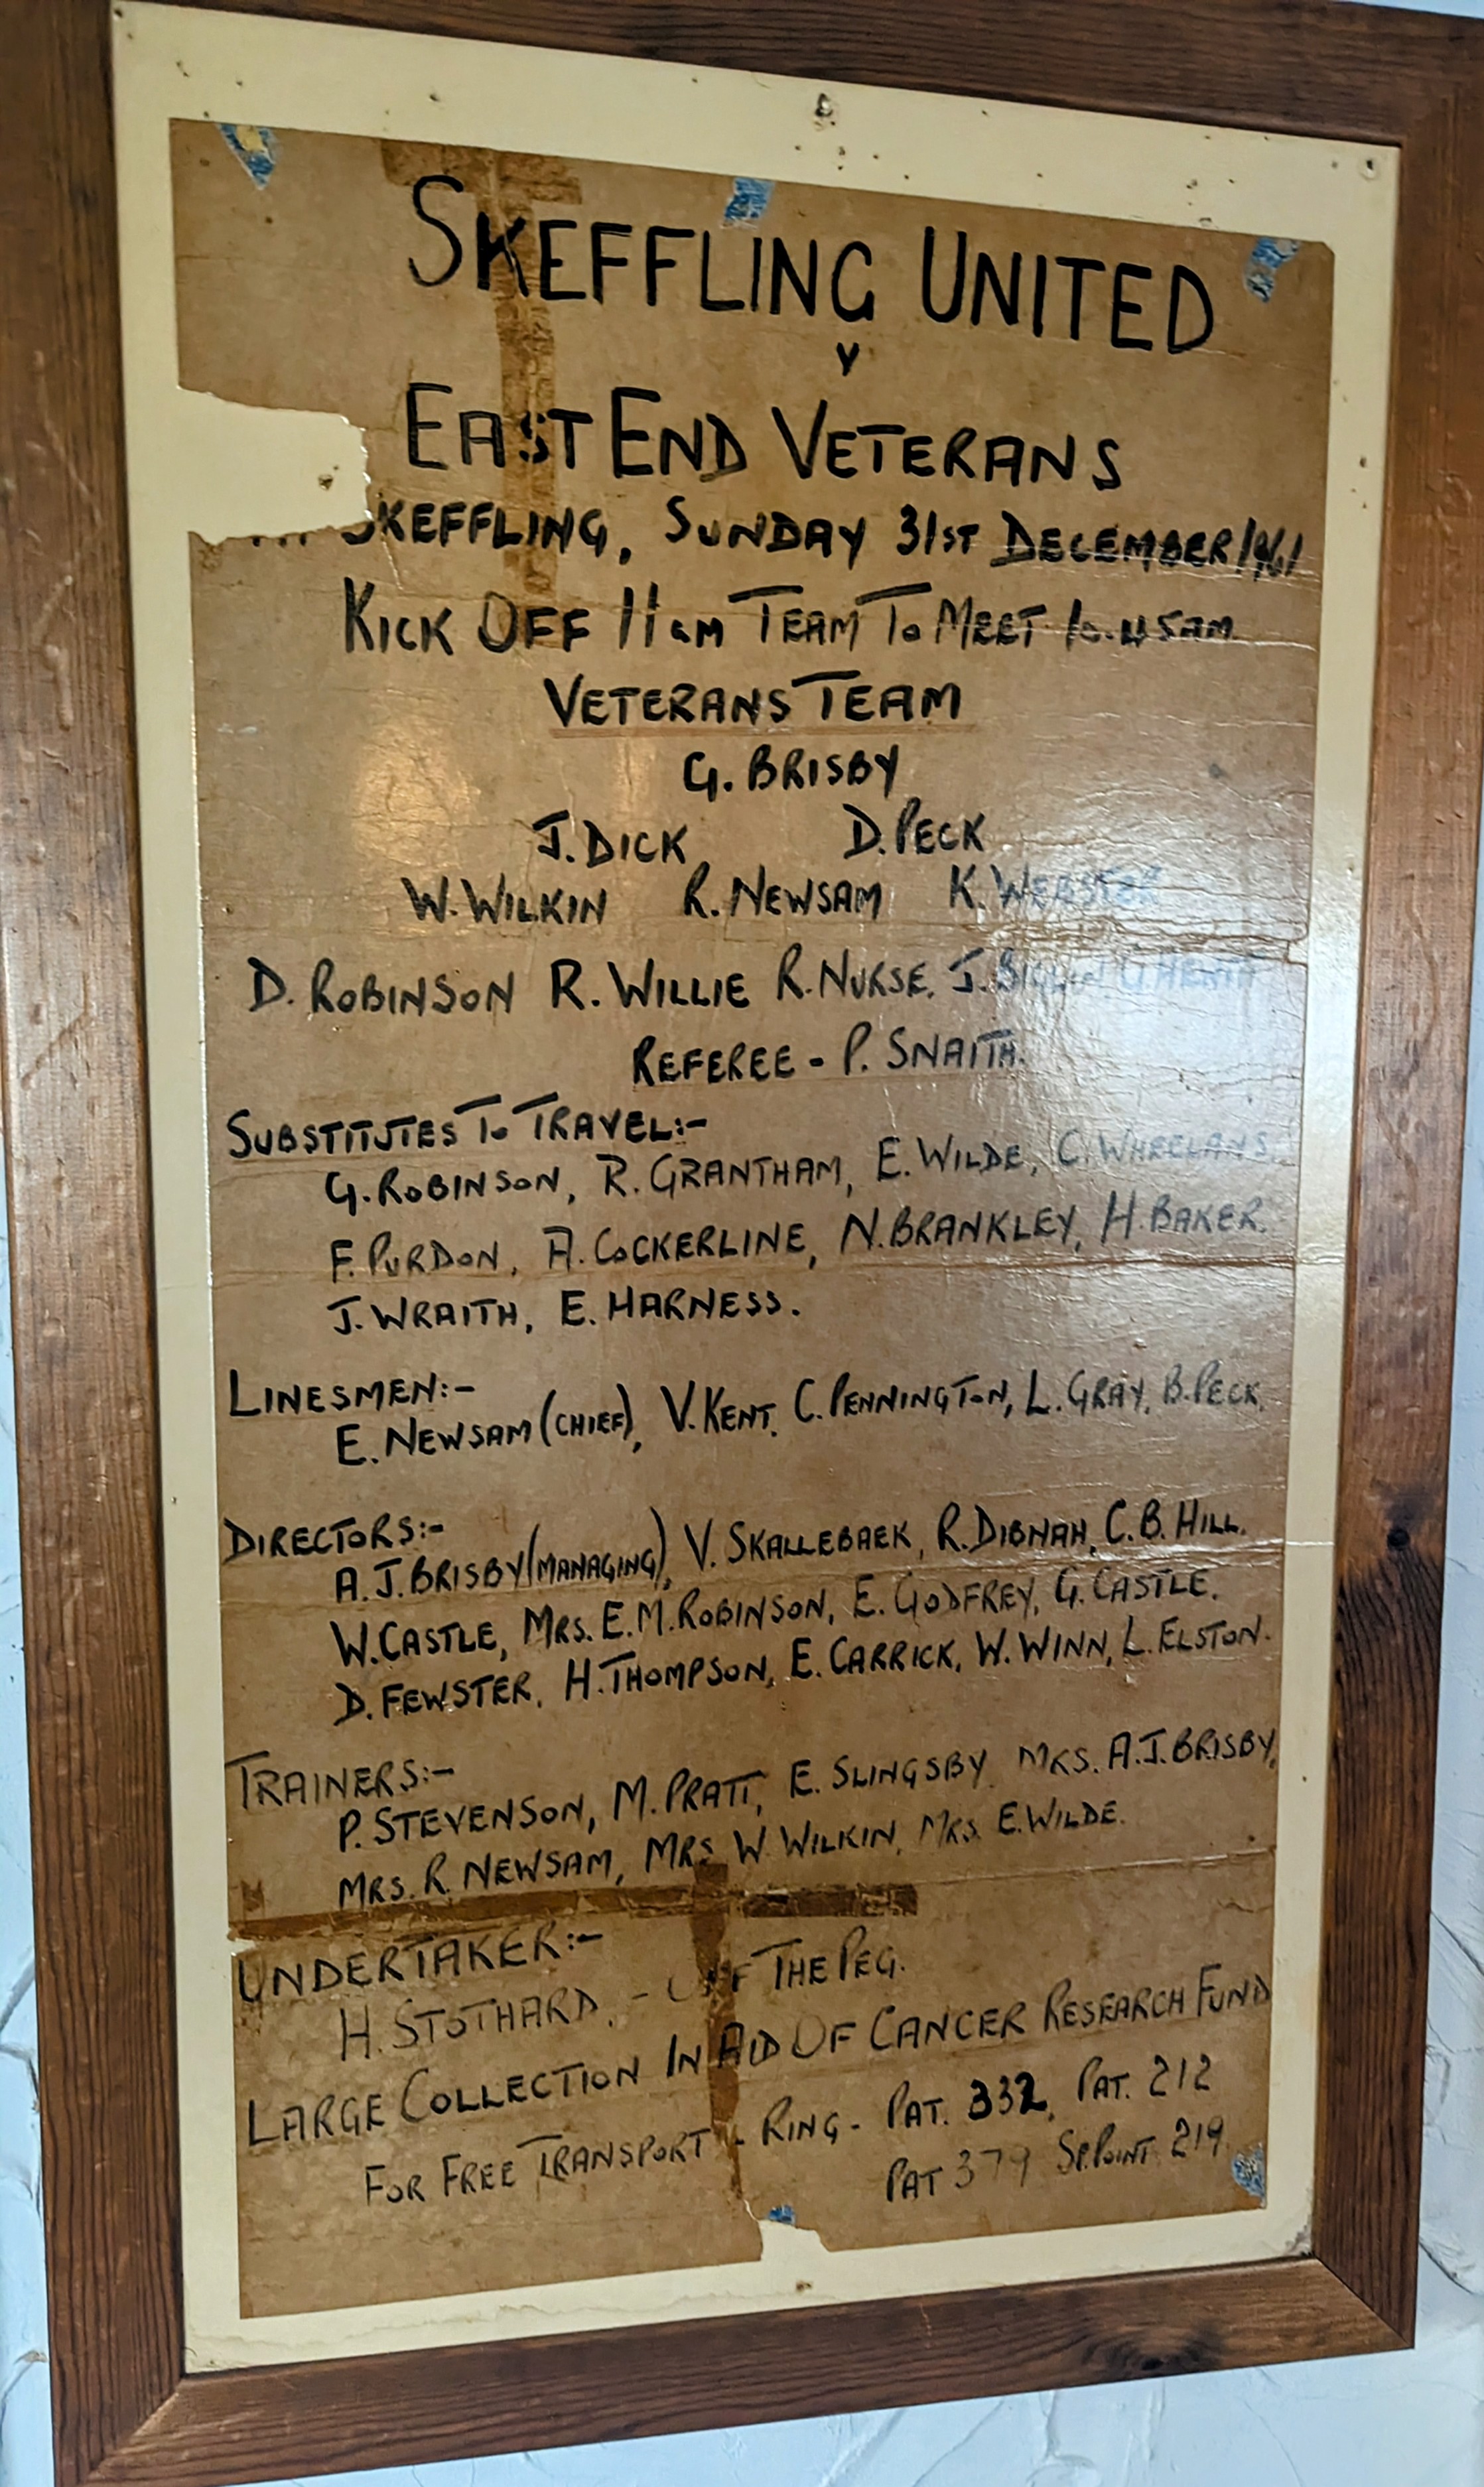 SKEFFLING UNITED
V
EAST END VETERANS
SKEFFLING, SUNDAY 31ST DECEMBER 1961
KICK OFF 11 am TEAM TO MEET 10.45AM
VETERANS TEAM
G. BRISBY
J. DICK D. PECK
W. WILKIN R. NEWSAM K. WEBSTER
D. ROBINSON R. WILLIE R. NURSE, J.
REFEREE - P. SNAITH.
SUBSTITUTES TO TRAVEL:-
G. ROBINSON, R. GRANTHAM, E. WILDE, C. WHEELANS,
F. PURDON, A. COCKERLINE, N. BRANKLEY, H. BAKER.
J. WRAITH, E. HARNESS.
LINESMEN:-
E. NEWSAM (CHIEF), V. KENT, C. PENNINGTON, L. GRAY, B. PECK.
DIRECTORS:-
A. J. BRISBY (MANAGING), V. SKALLEBAEK, R. DIBNAH, C. B. HILL.
W. CASTLE, MRS. E. M. ROBINSON, E. GODFREY, G. CASTLE.
D. FEWSTER, H. THOMPSON, E. CARRICK, W. WINN, L. ELSTON.
TRAINERS:-
P. STEVENSON, M. PRATT, E. SLINGSBY, MRS. A. J. BRISBY,
MRS. R. NEWSAM, MRS W. WILKIN, MRS. E. WILDE.
UNDERTAKER:-
H. STOTHARD. - OFF THE PEG.
LARGE COLLECTION IN AID OF CANCER RESEARCH FUND
FOR FREE TRANSPORT - RING - PAT. 332, PAT. 212
PAT 379 SP. POINT 219